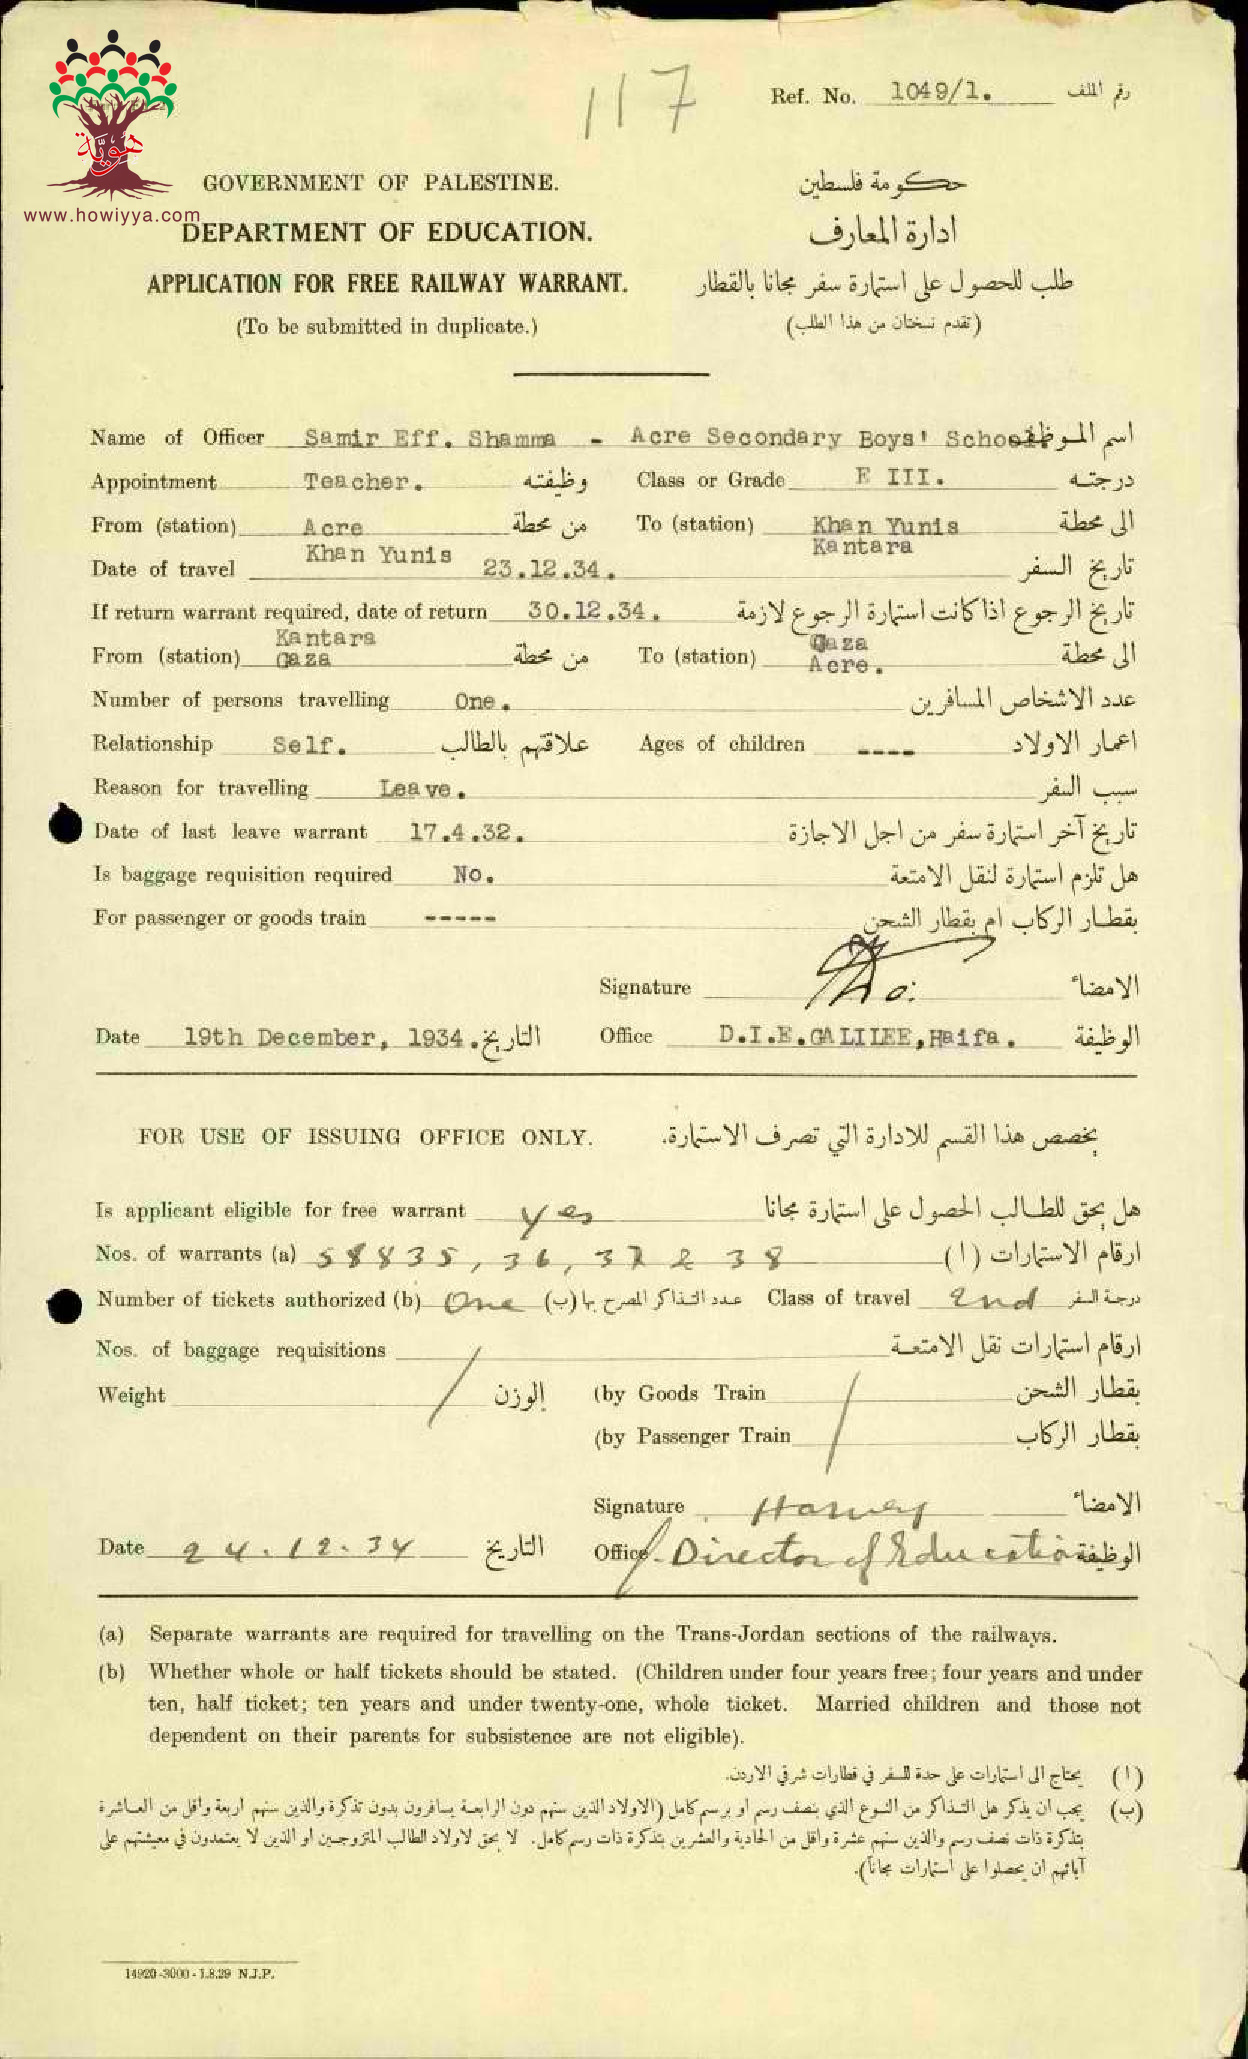 117
Ref. No. 1049/1. رقم الملف
هوية
www.howiyya.com
GOVERNMENT OF PALESTINE. حكومة فلسطين
DEPARTMENT OF EDUCATION. ادارة المعارف
APPLICATION FOR FREE RAILWAY WARRANT. طلب للحصول على استمارة سفر مجانا بالقطار
(To be submitted in duplicate.) (تقدم نسختان من هذا الطلب)
Name of Officer Samir Eff. Shamma - Acre Secondary Boys' School. اسم الموظف
Appointment Teacher. وظيفته Class or Grade E III. درجته
From (station) Acre من محطة To (station) Khan Yunis الى محطة
Khan Yunis Kantara
Date of travel 23.12.34. تاريخ السفر
If return warrant required, date of return 30.12.34. تاريخ الرجوع اذا كانت استمارة الرجوع لازمة
Kantara Gaza
From (station) Gaza من محطة To (station) Acre. الى محطة
Number of persons travelling One. عدد الاشخاص المسافرين
Relationship Self. علاقتهم بالطالب Ages of children ---- اعمار الاولاد
Reason for travelling Leave. سبب السفر
Date of last leave warrant 17.4.32. تاريخ آخر استمارة سفر من اجل الاجازة
Is baggage requisition required No. هل تلزم استمارة لنقل الامتعة
For passenger or goods train ----- بقطار الركاب ام بقطار الشحن
Signature الامضاء
Date 19th December, 1934. التاريخ Office D.I.E.GALILEE,Haifa. الوظيفة
FOR USE OF ISSUING OFFICE ONLY. يخصص هذا القسم للادارة التي تصرف الاستمارة.
Is applicant eligible for free warrant Yes هل يحق للطالب الحصول على استمارة مجانا
Nos. of warrants (a) 58835, 36, 37 & 38 ارقام الاستمارات (ا)
Number of tickets authorized (b) One عدد التذاكر المصرح بها (ب) Class of travel 2nd درجة السفر
Nos. of baggage requisitions ارقام استمارات نقل الامتعة
Weight الوزن (by Goods Train بقطار الشحن
(by Passenger Train بقطار الركاب
Signature Harvey الامضاء
Date 24.12.34 التاريخ Office Director of Education الوظيفة
(a) Separate warrants are required for travelling on the Trans-Jordan sections of the railways.
(b) Whether whole or half tickets should be stated. (Children under four years free; four years and under
ten, half ticket; ten years and under twenty-one, whole ticket. Married children and those not
dependent on their parents for subsistence are not eligible).
(ا) يحتاج الى استمارات على حدة للسفر في قطارات شرقي الاردن.
(ب) يجب ان يذكر هل التذاكر من النوع الذي بنصف رسم او برسم كامل (الاولاد الذين سنهم دون الرابعة يسافرون بدون تذكرة والذين سنهم اربعة واقل من العاشرة
بتذكرة ذات نصف رسم والذين سنهم عشرة واقل من الحادية والعشرين بتذكرة ذات رسم كامل. لا يحق لاولاد الطالب المتزوجين او الذين لا يعتمدون في معيشتهم على
آبائهم ان يحصلوا على استمارات مجاناً).
14920-3000-1.8.29 N.J.P.